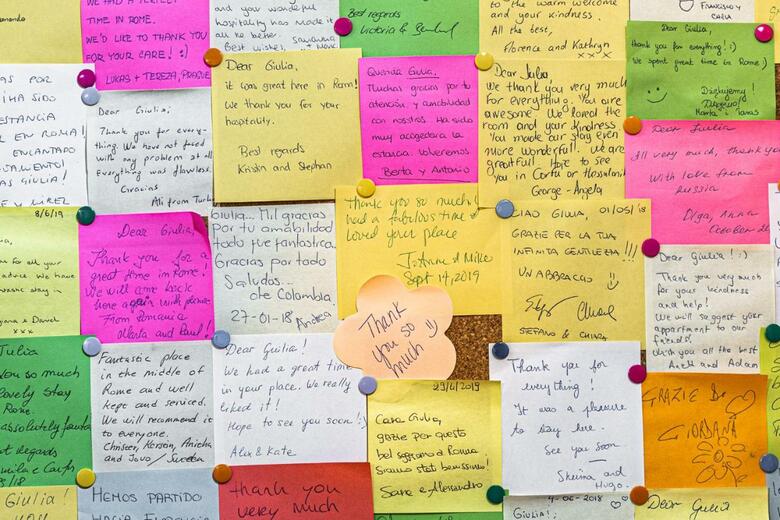 WE HAD A
TIME IN ROME.
WE'D LIKE TO THANK YOU
FOR YOUR CARE! :)
LUKAS + TEREZA, PRAGUE
and your wonderful
hospitality has made it
all be better.
Best wishes,
Best regards
Victoria &
to the warm welcome
and your kindness.
All the best,
Florence and Kathryn
xxx
Francisco y
Dear Giulia,
thank you for everything! :)
We spent great time in Rome :)
Dziękujemy!
Marta i
POR
HA SIDO
ESTANCIA
EN ROMA!
ENCANTADO
GIULIA!
Dear Giulia,
Thank you for every-
thing. We have not faced
with any problem at all
Everything was flawless.
Gracias
Ali from
Dear Giulia,
it was great here in Rom!
We thank you for your
hospitality.
Best regards
Kristin and Stephan
Querida Giulia,
Muchas gracias por tu
atención, y amabilidad
con nosotros. Ha sido
muy acogedora la
estancia. Volveremos
Berta y Antonio
Dear Julia
We thank you very much
for everything. You are
awesome. We loved the
room and your kindness.
You made our stay even
more wonderful. We are
greatfull. Hope to see
you in Corfu or
George - Angela
Dear Julia
All very much, thank you
With love from
Russia
Olga, Anna
October
8/6/19
for all your
advice. We have
stay in
Daniel
xxx
Dear Giulia,
Thank you for a
great time in Rome!
We will come back
here again with
From Romania
and Paul!
Giulia... Mil gracias
Por tu amabilidad
todo fue fantastico.
Gracias por todo
Saludos...
de Colombia.
27-01-18 Andrea
Thank you so much I
had a fabulous time &
loved your place
J. Anne & Mike
Sept 14, 2019
CIAO GIULIA, 01/05/18
GRAZIE PER LA TUA
INFINITA GENTILEZZA !!!
UN ABBRACCIO
STEFANO & CHIARA
Dear Giulia! :)
Thank you very much
for your kindness
and help!
We will suggest your
appartment to our
friends!
Wish you all the best
and Adam
Thank you so much
Julia
you so much
lovely stay
Rome.
absolutely
regards
Fantastic place
in the middle of
Rome and well
kept and serviced.
We will recommend it
to everyone.
and Jovo / Sweden
Dear Guilia!
We had a great time
in your place. We really
liked it!
Hope to see you soon! :)
Alex & Kate
29/4/2019
Cara Giulia,
grazie per questo
bel soggiorno a Roma
siamo stati benissimo!
Sara e Alessandro
Thank you for
everything!
It was a pleasure
to stay here.
See you soon
and
Hugo.
GRAZIE
GIORDANA
Giulia!
HEMOS PARTIDO
HACIA
thank you
very much
4-06-2018
Giulia!
Dear Giulia